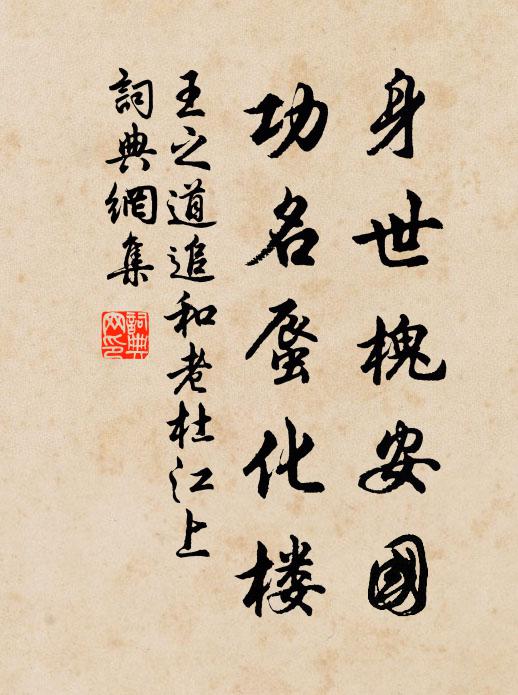 身世槐安國
功名蜃化楼
王之道追和老杜江上
詞典網集
詞典
网印